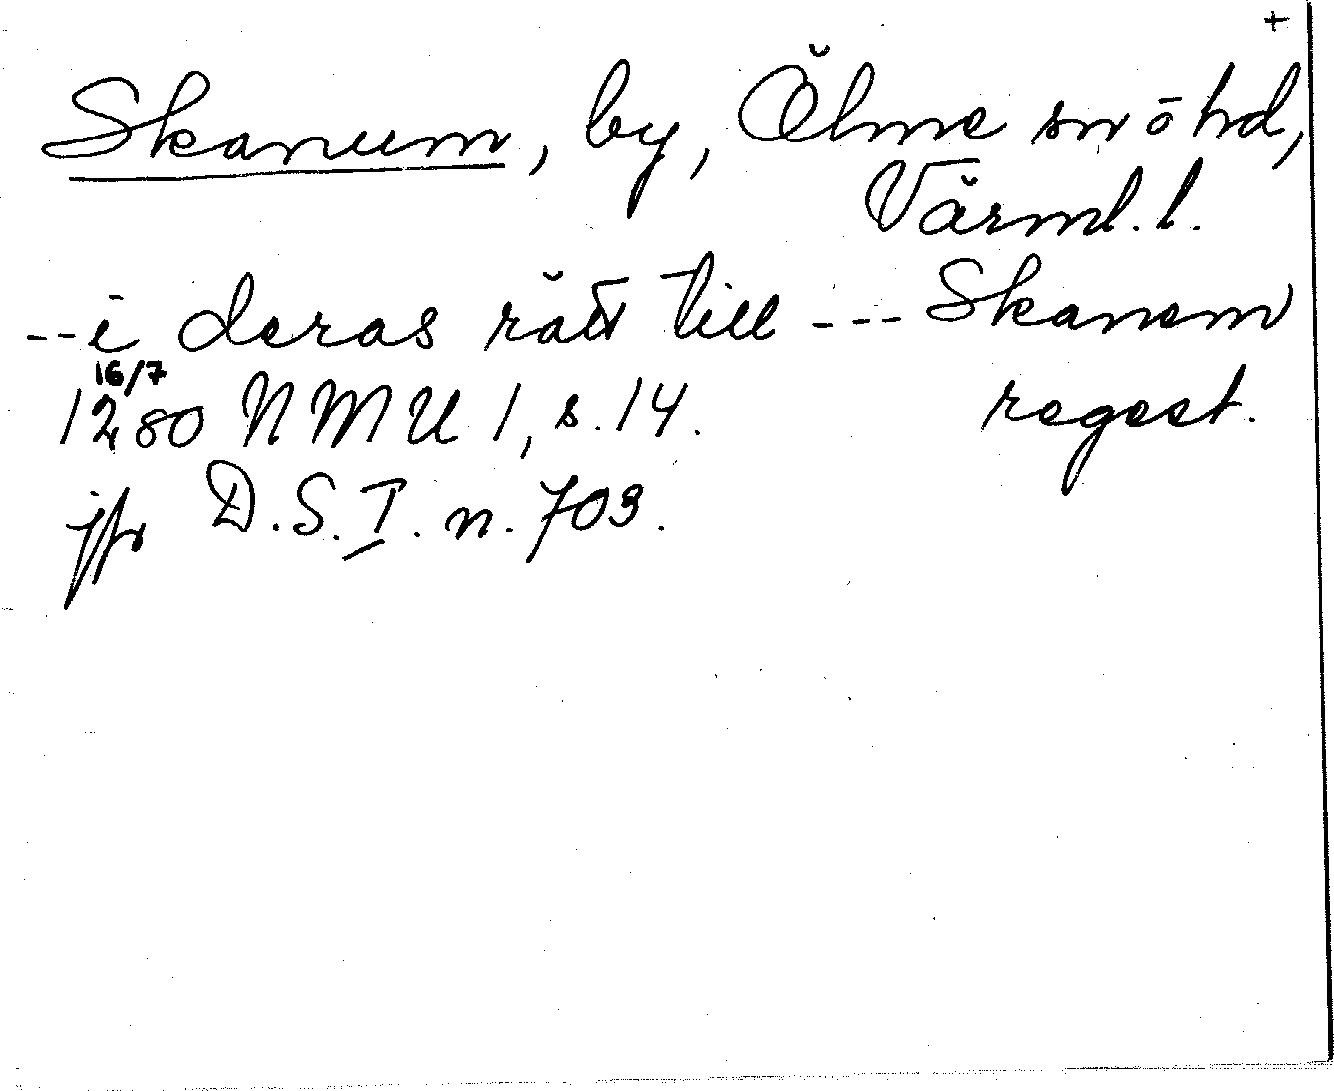 +
Skanum, by, Ölme sn ō hd,
Värml. l.
--i deras rätt till --- Skanem
16/7
1280 NMU 1, s. 14. regest.
jfr D.S. I. n. 703.